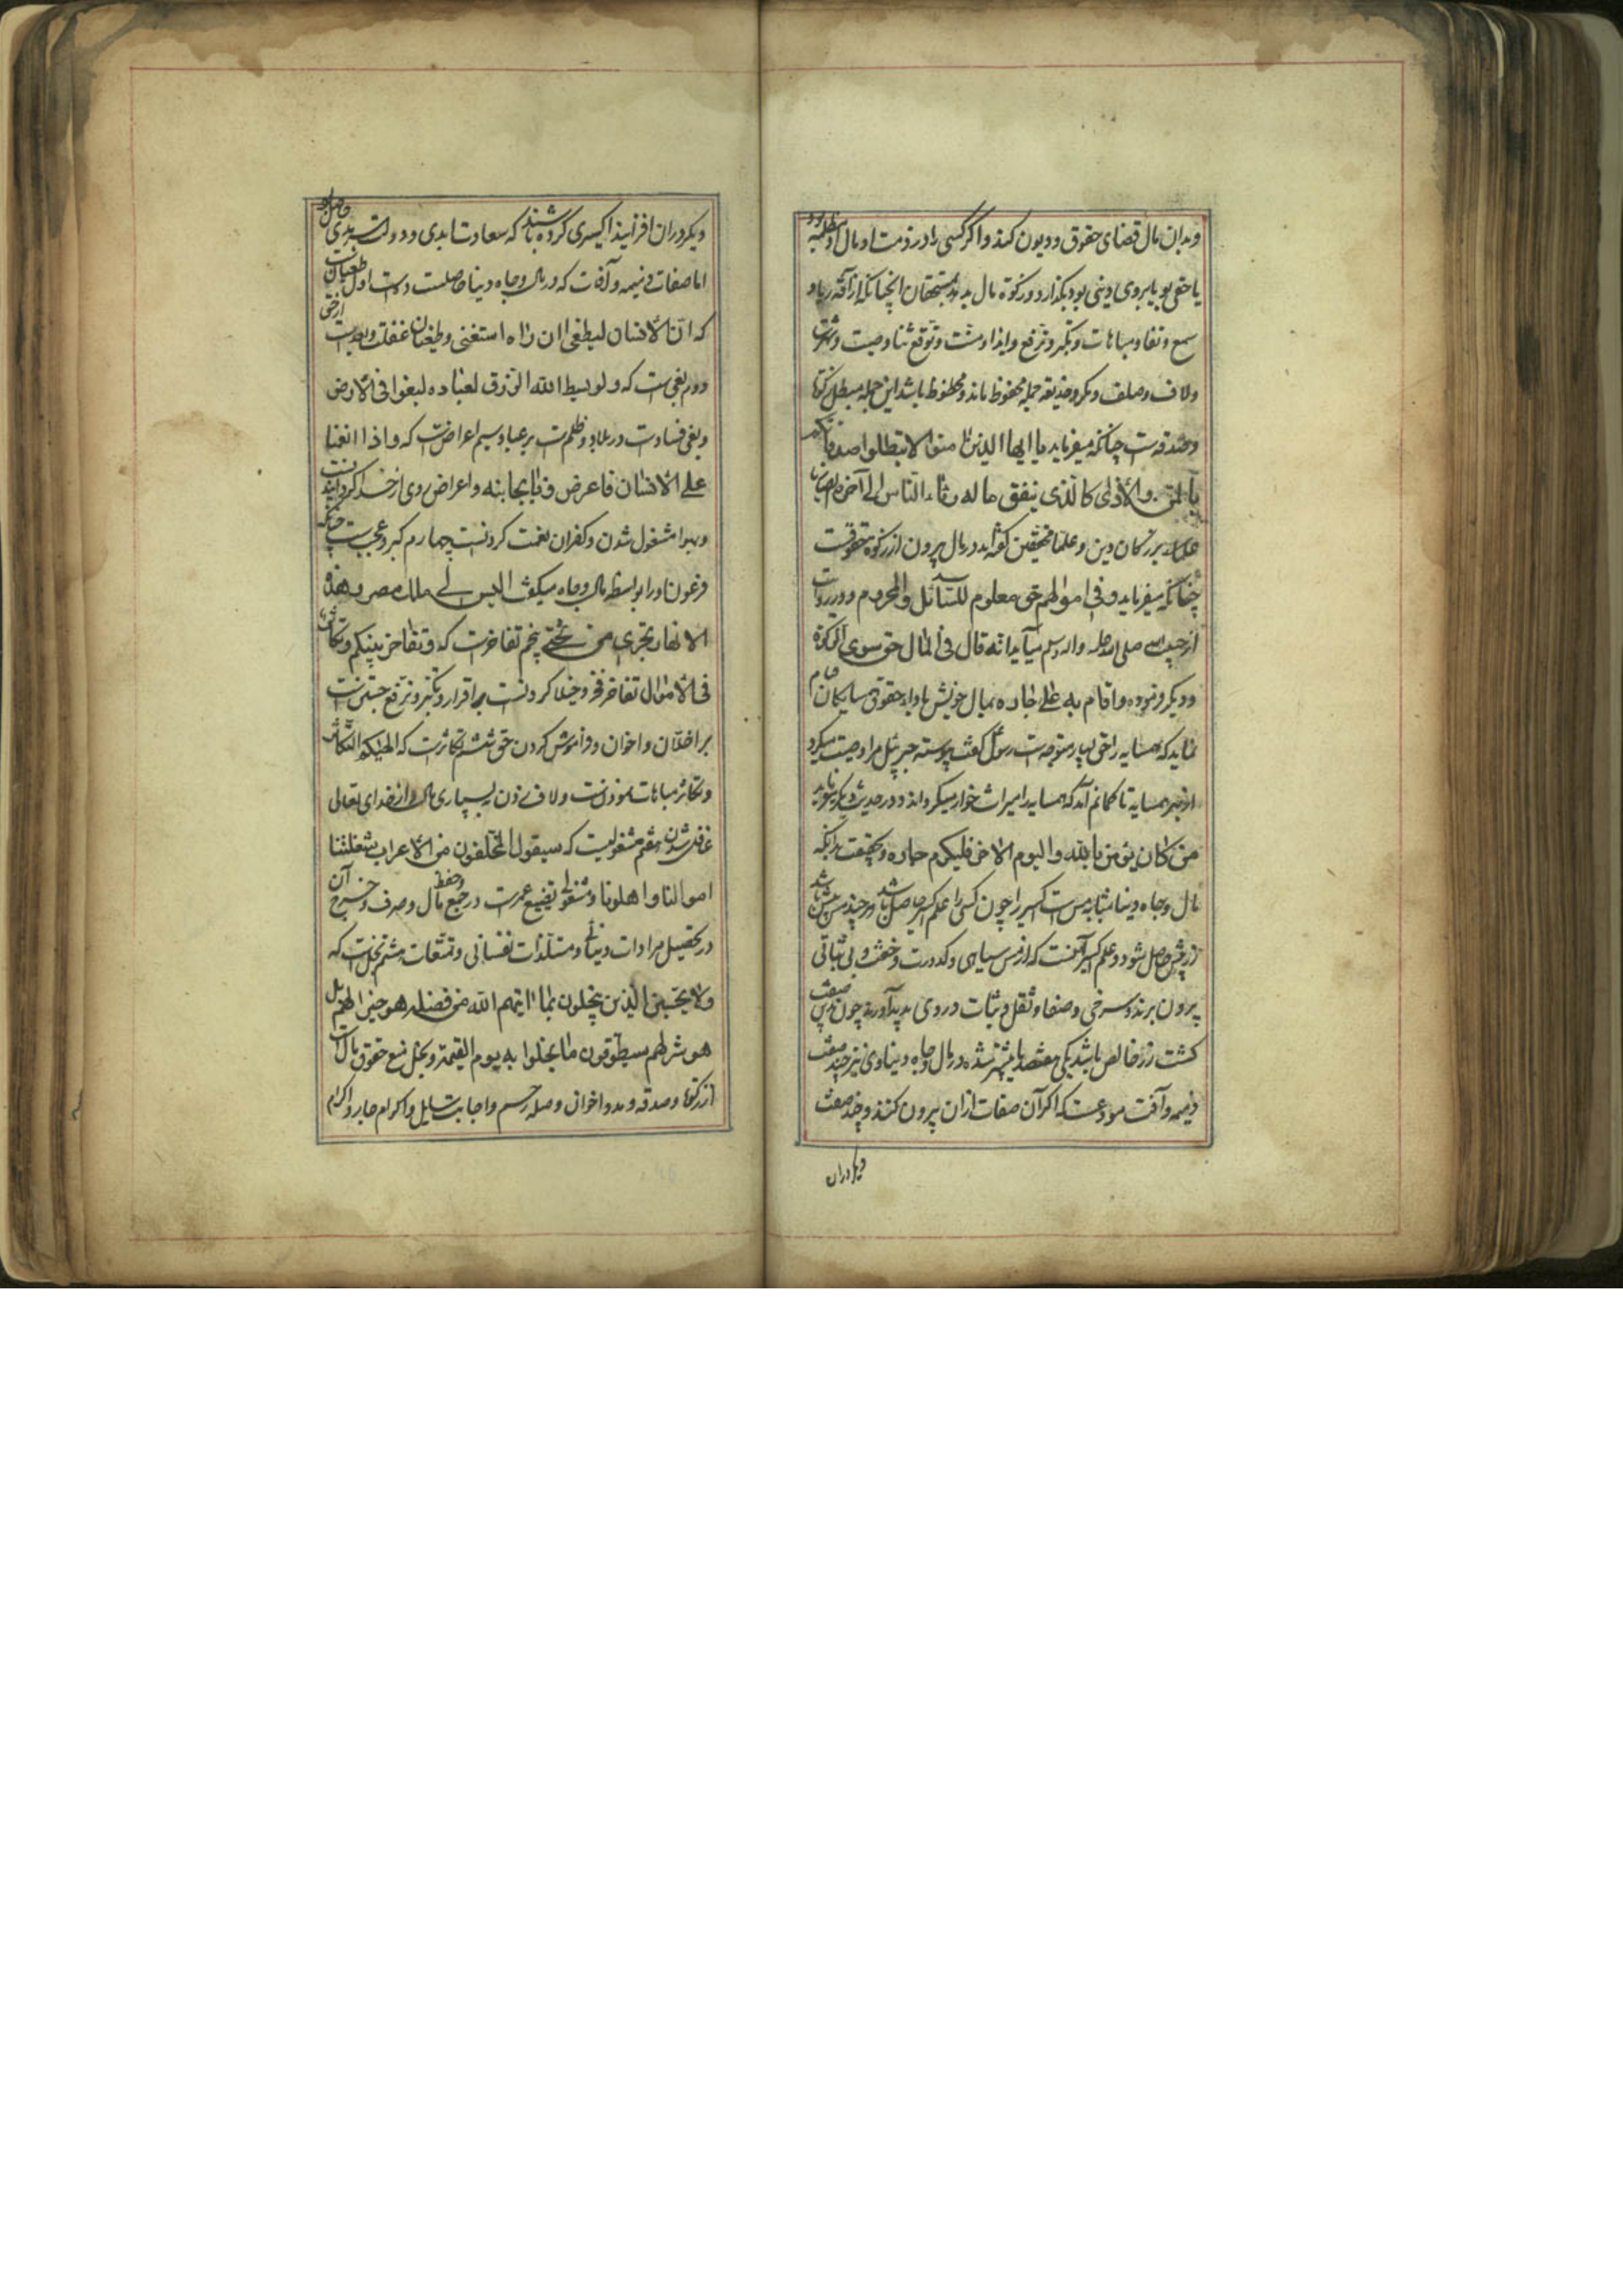 وبدان مال قضای حقوق و دیون کند و اگر کسی را در ذمت او مال او مظلمه بود
یا حقی بود یا بروی دینی بود بگذارد و زکوة مال بدهد بمستحقان انچنانکه از آفة ریا و
سمع و نفاد مباهات و تکبر و ترفع و ایذا و منت و توقع ثنا و صیت و شهرت
ولاف و صلف و مکر و خدیعه جمله محفوظ ماند و محظوظ باشد این جمله مبطل زکوة
وصدقه است چنانکه میفرماید یا ایها الذین امنوا لا تبطلوا صدقاتکم
بالمن والأذی کالذی ینفق ماله رئاء الناس الی آخره
بزرکان دین و علما محققین کفته اند در مال بیرون از زکوة حقوقست
چنانکه میفرماید و فی اموالهم حق معلوم للسآئل والمحروم و در روایت
از حبیب صلی الله علیه واله وسلم میآید انه قال فی المال حق سوی الزکوة
و دیکر فرموده وا قام به علی جاده بمال خویش بادای حقوق همسایکان قیام
نماید که همسایه را حق بسیار متوجه است رسول کفت پیوسته جبرئیل مرا وصیت میکرد
از بهر همسایه تا کمانم آمد که همسایه را میراث خوار میکرداند و در حدیث دیکر میفرماید
من کان یؤمن بالله والیوم الاخر فلیکرم جاره و بحقیقت بدانکه
مال و جاه دنیا بمثابه مس است اکسیر را چون کسی را علم اکسیر حاصل شد هر چند مس بیش باشد
زر بیش حاصل شود و علم اکسیر آنست که از مس سیاهی و کدورت و خفت و بی ثباتی
بیرون برند و سرخی و صفا و ثقل و ثبات در وی پدید آورند چون بدین صفت
کشت زر خالص باشد یکی بهفتصد یا بیشتر شده در مال و جاه دنیاوی نیز چند صفت
ذمیمه و آفت مودعست که اکر آن صفات ازان بیرون کنند و چند صفت
دیکر دران
دیکر دران افزایند اکسیری کرده باشند که سعادت ابدی و دولت سرمدی حاصل آید
اما صفات ذمیمه و آفات که در مال و جاه دنیا حاصلست ده است اول طغیانست
که ان الأنسان لیطغی ان راه استغنی و طغیان غفلت و بعدست از حق
دوم بغی است که ولو بسط الله الرزق لعباده لبغوا فی الأرض
وبغی فساد است در بلاد و ظلمست بر عباد سیم اعراضست که واذا انعمنا
علی الأنسان فاعرض ونأی بجانبه و اعراض روی از خدا کردانیدنست
وبهوا مشغول شدن و کفران نعمت کردنست چهارم کبر و عجبست چنانکه
فرعون را بواسطه مال و جاه میکفت الیس لی ملک مصر وهذه
الانهار تجری من تحتی پنجم تفاخرست که وتفاخر بینکم وتکاثر
فی الأموال تفاخر فخر و خیلا کردنست بر اقران و تکبر و ترفع جستنست
بر اخدان و اخوان و فراموش کردن حق ششم تکاثرست که الهیکم التکاثر
وتکاثر مباهات نمودنست ولاف زدن به بسیاری مال و از خدای تعالی
غافل شدن هفتم مشغولیست که سیقول المخلفون من الأعراب شغلتنا
اموالنا واهلونا و مشغولی تضییع عمرست در جمع و حفظ مال و صرف و خرج آن
در تحصیل مرادات دنیائی و مستلذات نفسانی و تمتعات هشتم بخلست که
ولا یحسبن الذین یبخلون بما اتیهم الله من فضله هو خیرا لهم بل
هو شر لهم سیطوقون ما بخلوا به یوم القیمة و بخل منع حقوق مال است
از زکوة و صدقه و مدد اخوان و صله رحم و اجابت سایل و اکرام جار و اکرام